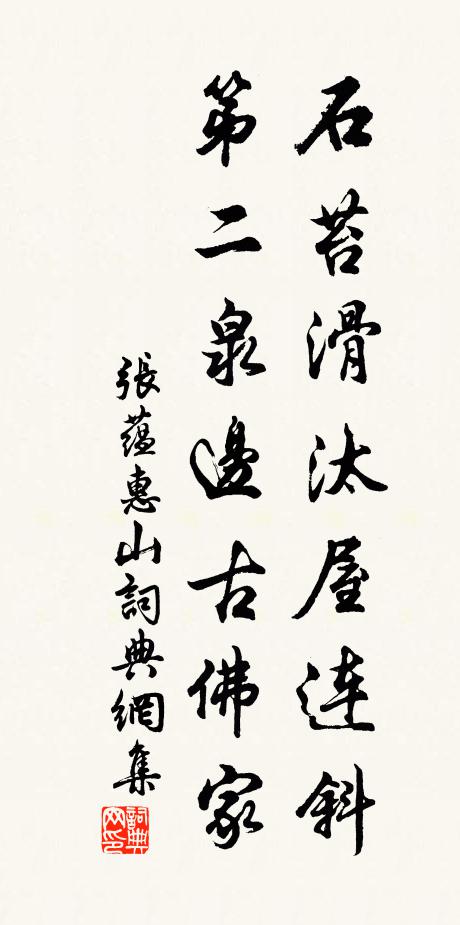 石苔滑汰屋連斜
第二泉邊古佛家
張蘊惠山詞典網集
詞典网印